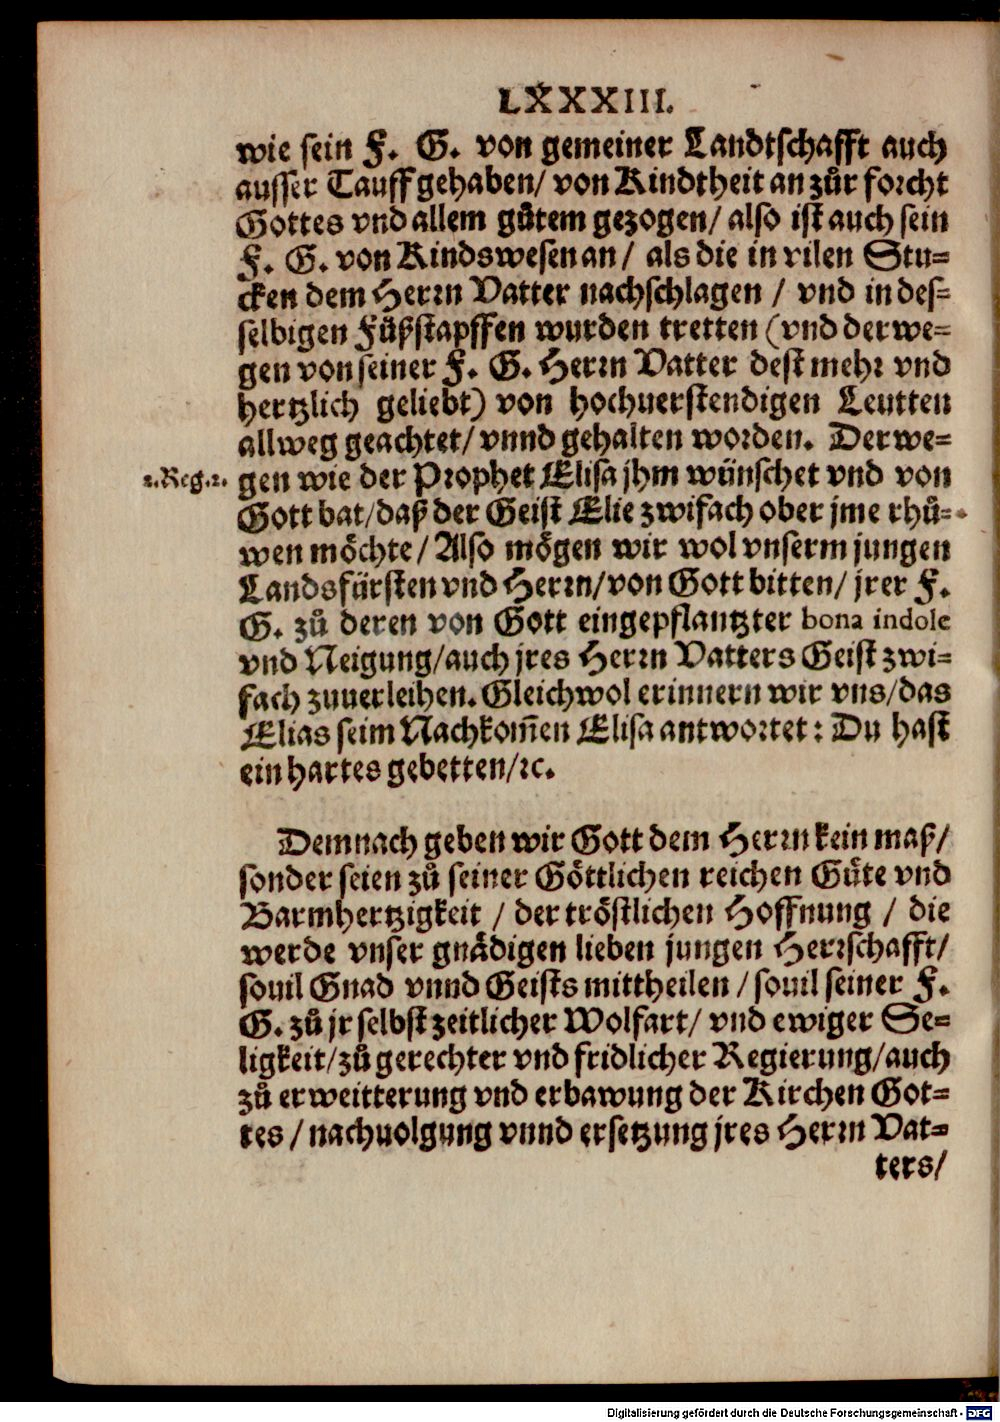 LXXXIII.
wie sein F. G. von gemeiner Landtschafft auch
ausser Tauff gehaben/ von Kindtheit an zůr forcht
Gottes vnd allem gůtem gezogen/ also ist auch sein
F. G. von Kindswesen an/ als die in vilen Stu=
cken dem Herrn Vatter nachschlagen / vnd in des=
selbigen Fůßstapffen wurden tretten (vnd derwe=
gen von seiner F. G. Herrn Vatter dest mehr vnd
hertzlich geliebt) von hochuerstendigen Leutten
allweg geachtet/ vnnd gehalten worden. Derwe=
2.Reg.2. gen wie der Prophet Elisa jhm wünschet vnd von
Gott bat/daß der Geist Elie zwifach ober jme rhů=
wen möchte/ Also mögen wir wol vnserm jungen
Landsfürsten vnd Herrn/von Gott bitten/ jrer F.
G. zů deren von Gott eingepflantzter bona indole
vnd Neigung/auch jres Herrn Vatters Geist zwi=
fach zuuerleihen. Gleichwol erinnern wir vns/das
Elias seim Nachkom̄en Elisa antwortet: Du hast
ein hartes gebetten/ꝛc.
Demnach geben wir Gott dem Herrn kein maß/
sonder seien zů seiner Göttlichen reichen Gůte vnd
Barmhertzigkeit / der tröstlichen Hoffnung / die
werde vnser gnädigen lieben jungen Herrschafft/
souil Gnad vnnd Geists mittheilen / souil seiner F.
G. zů jr selbst zeitlicher Wolfart/ vnd ewiger Se=
ligkeit/zů gerechter vnd fridlicher Regierung/auch
zů erweitterung vnd erbawung der Kirchen Got=
tes / nachuolgung vnnd ersetzung jres Herrn Vat=
ters/
Digitalisierung gefördert durch die Deutsche Forschungsgemeinschaft - DFG